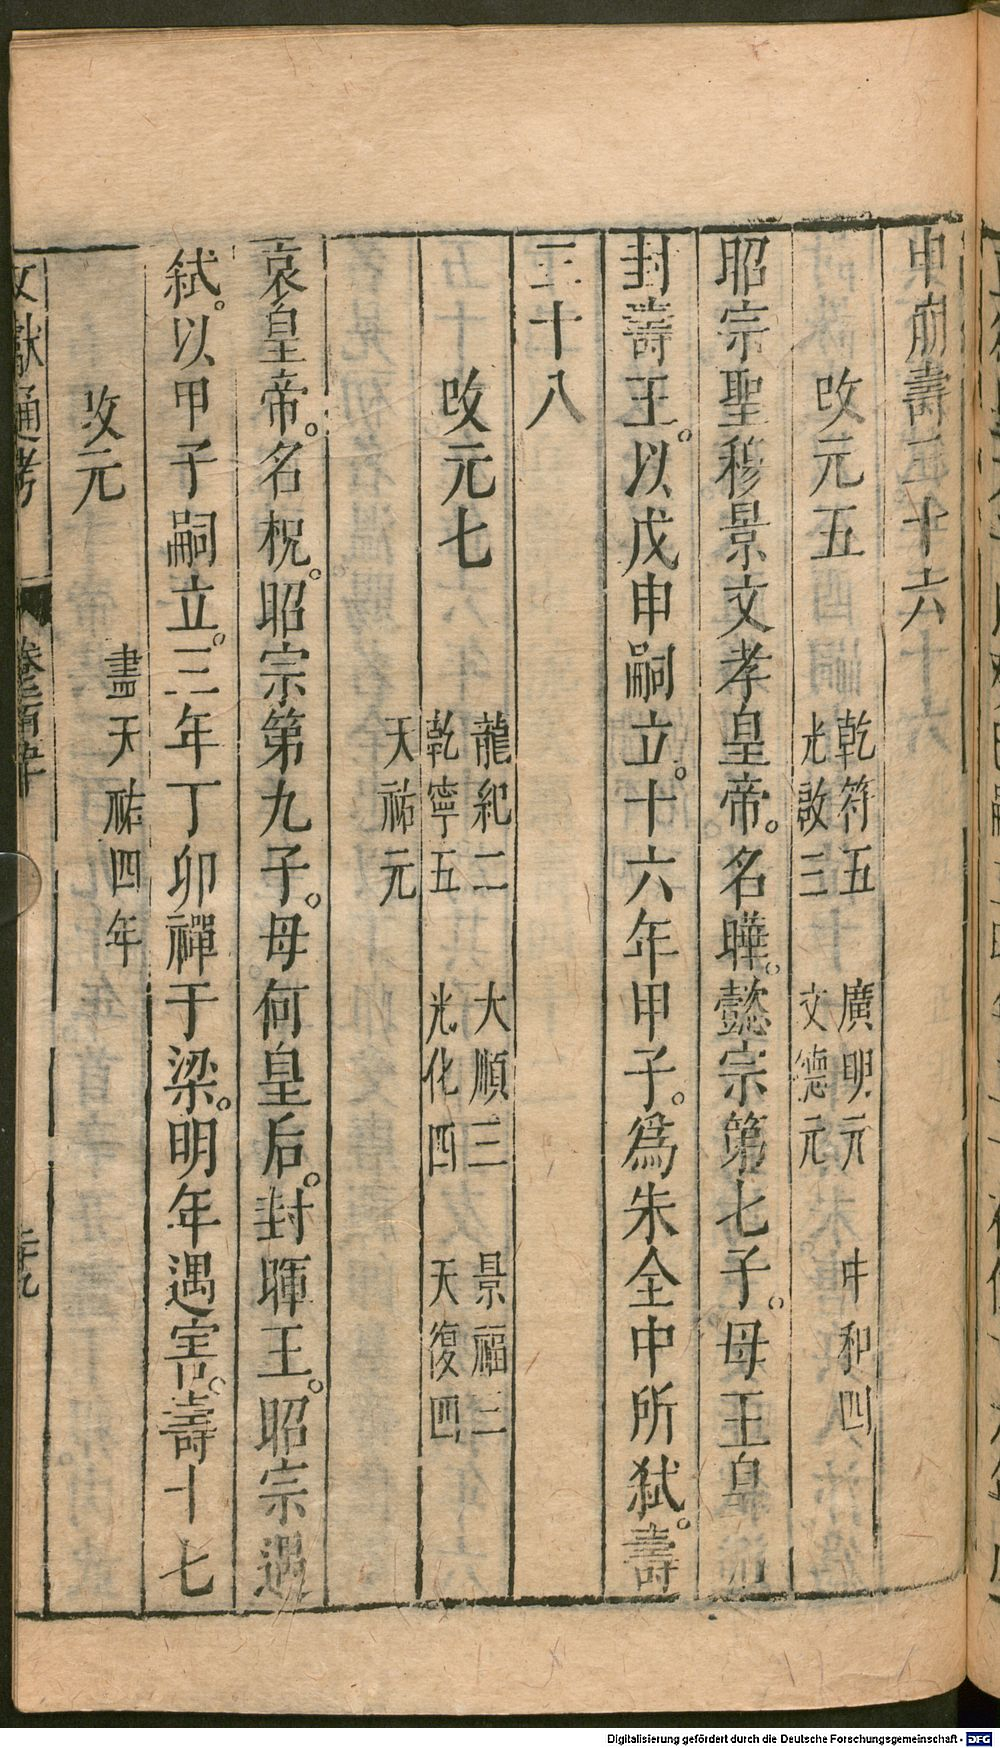 申崩壽十六
改元五
乾符五　廣明元　中和四
光啟三　文德元
昭宗聖穆景文孝皇帝。名曄。懿宗第七子。母王皇
封壽王。以戊申嗣立。十六年甲子。爲朱全中所弑。壽
三十八
改元七
龍紀二　大順三　景福三
乾寧五　光化四　天復四
天祐元
哀皇帝。名柷。昭宗第九子。母何皇后。封暉王。昭宗遇
弑。以甲子嗣立。三年丁卯禪于梁。明年遇害。壽十七
改元
盡天祐四年
文獻通考
Digitalisierung gefördert durch die Deutsche Forschungsgemeinschaft - DFG